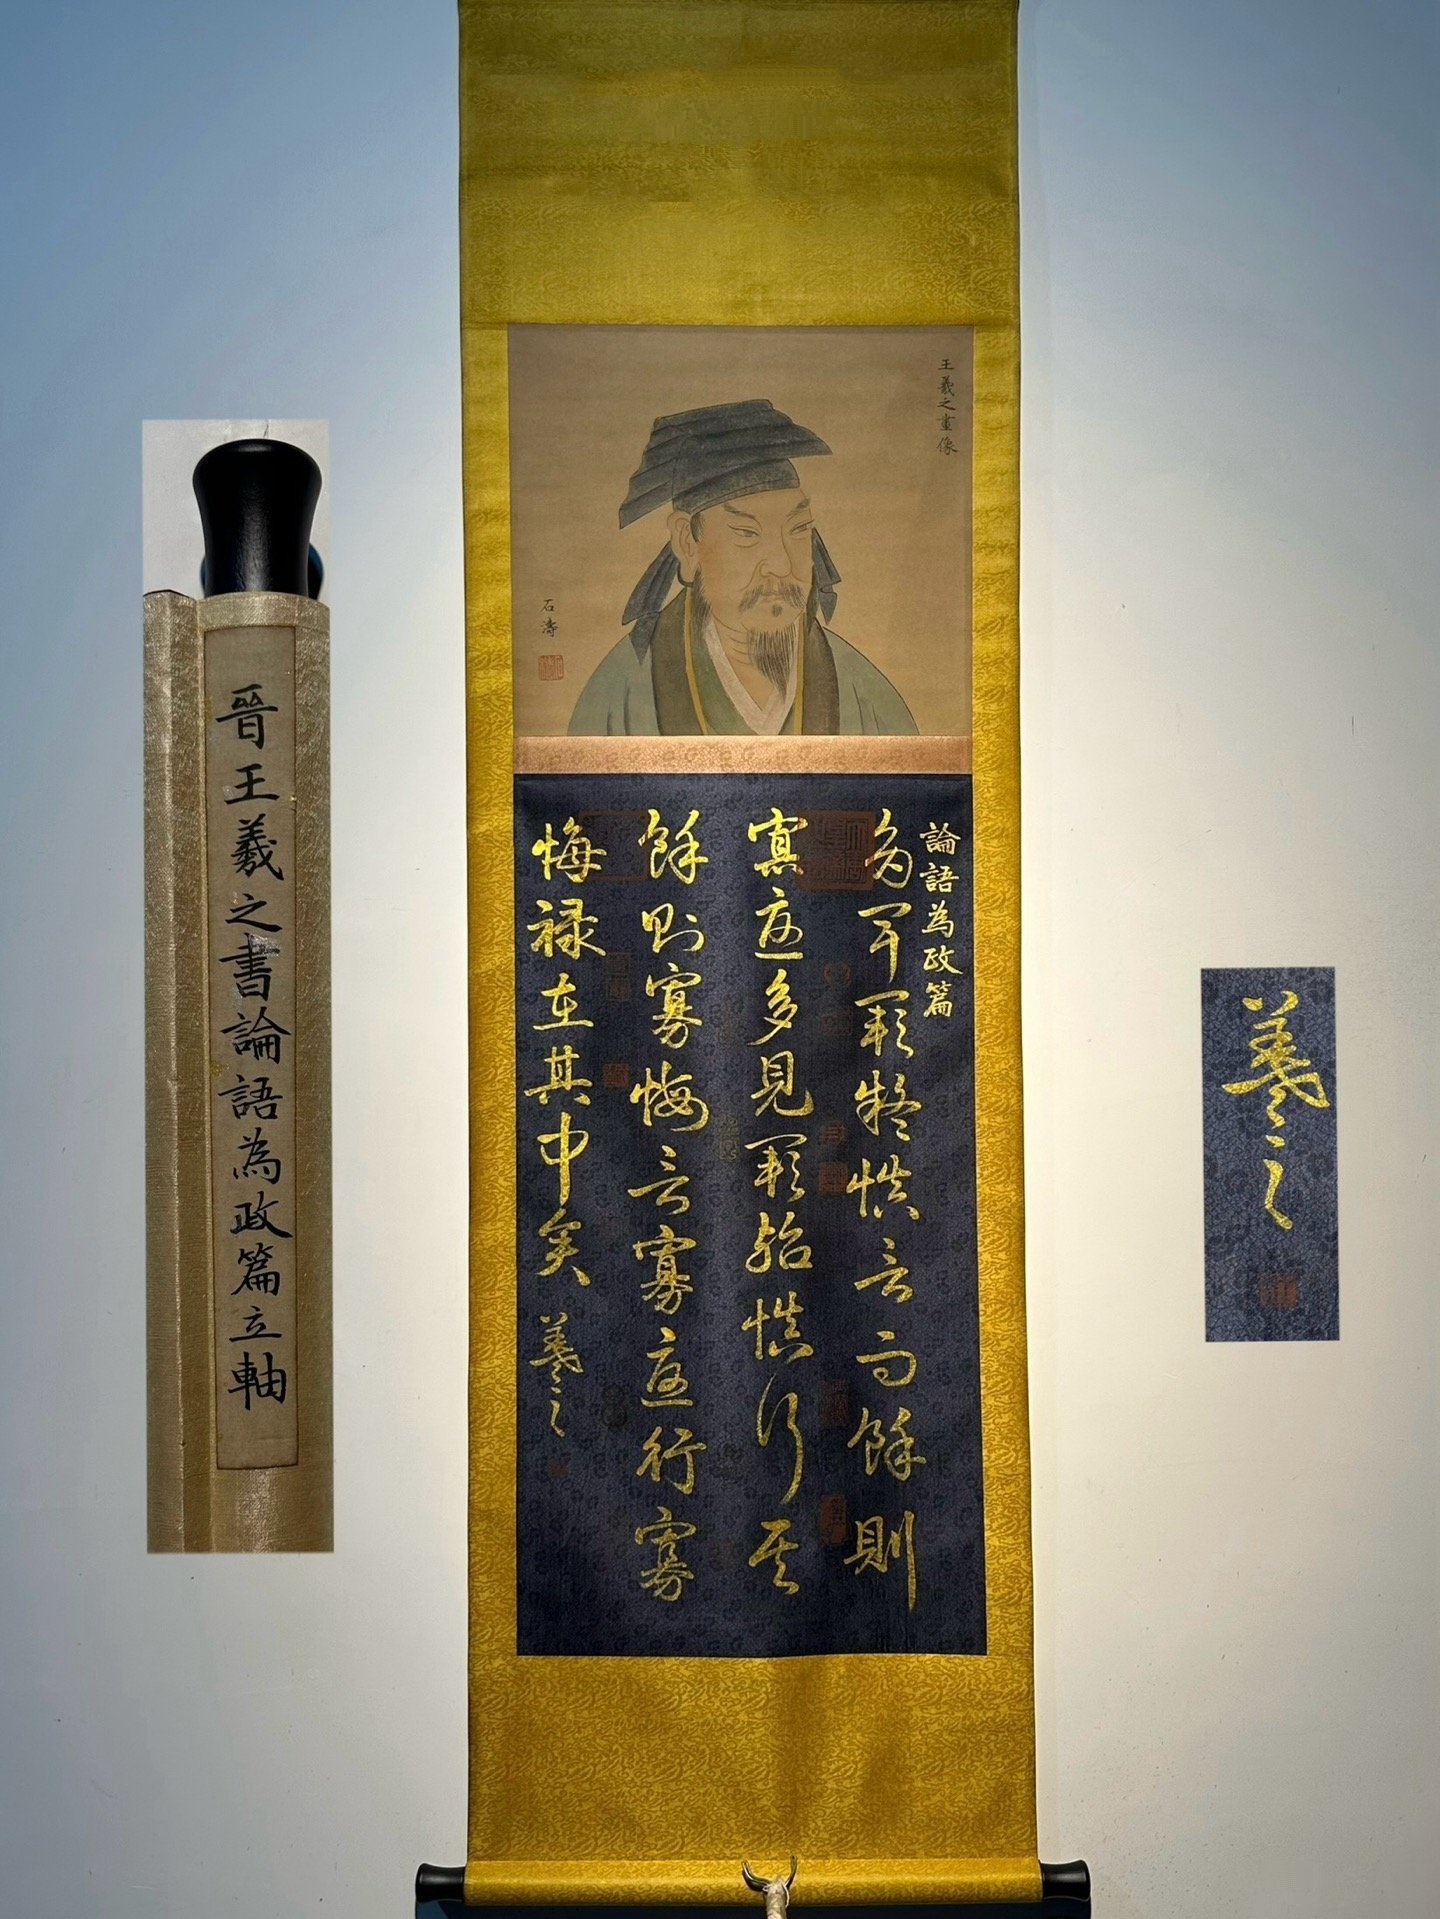 晉王羲之書論語為政篇立軸
王羲之畫像
石濤
論語為政篇
多聞闕疑慎言其餘則
寡尤多見闕殆慎行其
餘則寡悔言寡尤行寡
悔禄在其中矣 羲之
羲之